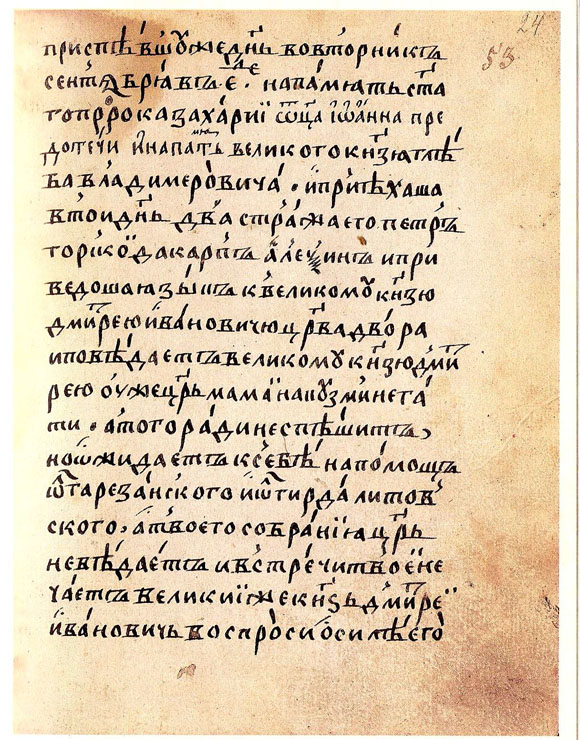 24
53
приспѣвшꙋже дн҃ь вовторникъ
сентѧбрѧ въ .е҃. напамѧть ст҃а
го прⷪ҇рока захарїи ѿц҃а іѡанна пре
дотечи и напамѧть великого кн҃зѧ глѣ
ба владимеровича . и приѣхаша
втои дн҃ь два стража его петръ
горскои да карпъ алеѯинъ и при
ведоша ѧзыкъ к великомꙋ кн҃зю
дмитрею ивановичю цр҃ва двора
и повѣдаетъ великомꙋ кн҃зю дми
рею ꙋже цр҃ь мамаи на кꙋзмине га
ти . а того ради не спѣшитъ ,
но ѡжидаетъ к себѣ на помощъ
ѿ гарезанского и ѿ гирда литов
ского , а твоего собранїѧ цр҃ь
не вѣдаетъ и встречи твоеи не
чаетъ великиї же кн҃ѕь дмитреї
ивановичь воспроси ѡ силѣ его